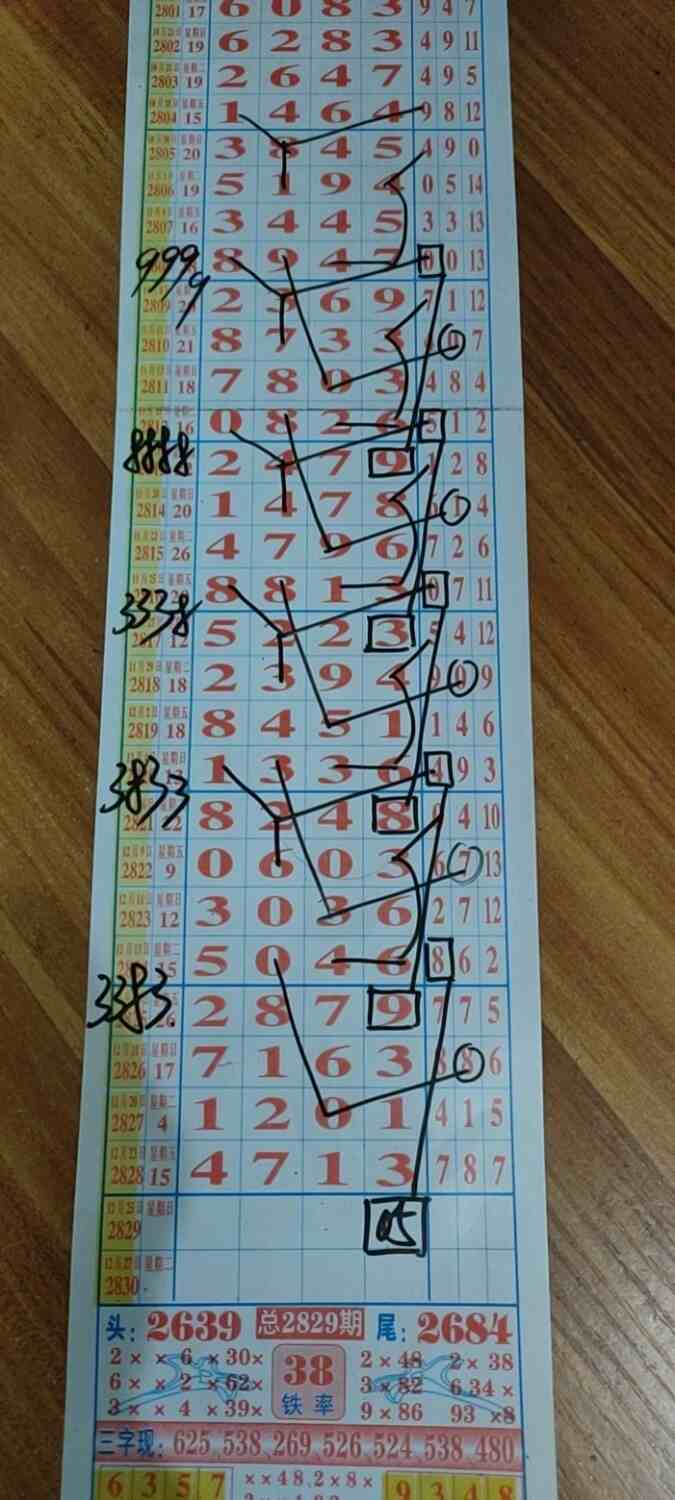 2801 17 6 0 8 3 9 4 7
2802 19 6 2 8 3 4 9 11
2803 19 2 6 4 7 4 9 5
2804 15 1 4 6 4 9 8 12
2805 20 3 8 4 5 4 9 0
2806 19 5 1 9 4 0 5 14
2807 16 3 4 4 5 3 3 13
9999 8 9 4 7 0 13
2809 2 3 6 9 7 1 12
2810 21 8 7 3 3 7
2811 18 7 8 0 3 4 8 4
16 0 8 2 6 5 1 2
8888 2 4 7 9 1 2 8
2814 20 1 4 7 8 6 1 4
2815 26 4 7 9 6 7 2 6
8 8 1 3 0 7 11
3338 2817 12 5 2 2 3 5 4 12
11月29日 星期二
2818 18 2 3 9 4 9 0 9
12月2日 星期五
2819 18 8 4 5 1 1 4 6
1 3 3 6 4 9 3
3833 2821 22 8 2 4 8 4 10
12月9日 星期五
2822 9 0 6 0 3 6 7 13
2823 12 3 0 3 6 2 7 12
15 5 0 4 6 8 6 2
3383 26 2 8 7 9 7 7 5
2826 17 7 1 6 3 8 8 6
2827 4 1 2 0 1 4 1 5
2828 15 4 7 1 3 7 8 7
2829 05
2830
头:2639 总2829期 尾:2684
2 × × 6 × 30× 38 2 × 48 2 × 38
6 × × 2 × 62× 铁率 3 × 82 6 34 ×
3 × × 4 × 39× 9 × 86 93 ×8
三字现:625 538 269 526 524 538 480
6 3 5 7 ××48 2×8× 9 3 4 8